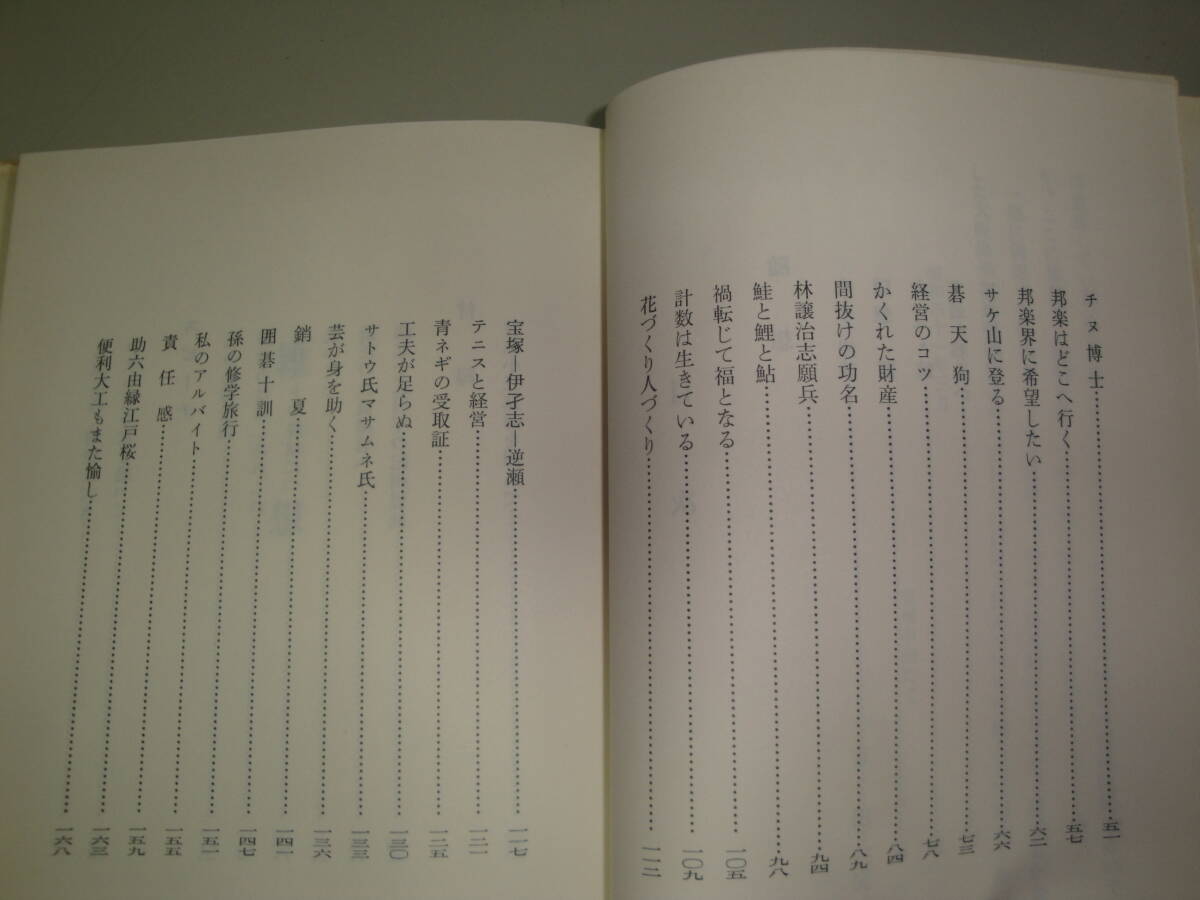 チヌ博士……五一
邦楽はどこへ行く……五七
邦楽界に希望したい……六二
サケ山に登る……六六
碁天狗……七三
経営のコツ……七八
かくれた財産……八四
間抜けの功名……八九
林譲治志願兵……九四
鮭と鯉と鮎……九八
禍転じて福となる……一〇五
計数は生きている……一〇九
花づくり人づくり……一一二
宝塚―伊孑志―逆瀬……一一七
テニスと経営……一二一
青ネギの受取証……一二五
工夫が足らぬ……一三〇
サトウ氏マサムネ氏……一三三
芸が身を助く……一三六
銷夏……一四一
囲碁十訓……一四七
孫の修学旅行……一五一
私のアルバイト……一五五
責任感……一五九
助六由縁江戸桜……一六三
便利大工もまた愉し……一六八